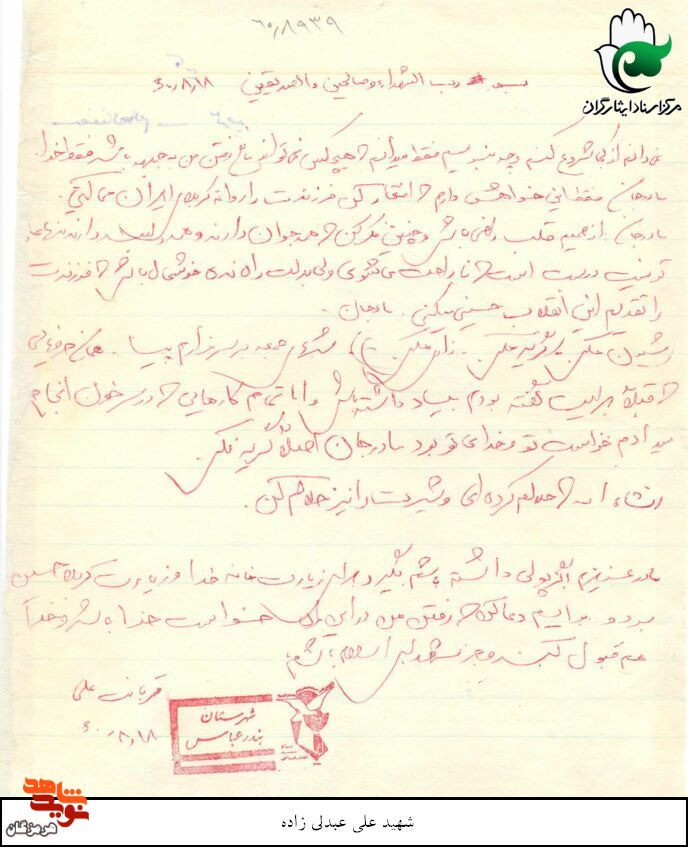 ۶۰/۸۹۳۹
مرکز اسناد ایثارگران
بسم رب الشهداء و صالحین و الصدیقین ۶۰/۸/۱۸
نمی‌دانم از کجا شروع کنم و چه بنویسم فقط میدانم که هیچکس نمی‌تواند مانع رفتن من به جبهه باشد فقط خدا.
مادرجان فقط این خواهشی دارم که افتخار کن فرزندت را روانه کربلای ایران می‌کنی.
مادرجان از صمیم قلب راضی باش و چنین فکر کن که همه جوان دارند و همه دارند تنها
تو نیست درست است که ناراحت می‌شوی ولی بدلت راه نده خوشحال باش که فرزندت
را تقدیم این انقلاب حسینی میکنی. مادرجان.
شیون مکن گریه مکن. زاری مکن شبهای جمعه بر سر مزارم بیا. همان حرفهایی
که قبلاً برایت گفته بودم بیاد داشته باش و اما تمام کارهایی که در سر خون انجام
میدادم خواست تو و خدای تو بود مادرجان اصلاً گریه مکن.
انشاءاله که حلالم کرده‌ای و شیرت را نیز حلالم کن.
مادر عزیزم اگر پولی داشته باشم بگیر و برای زیارت خانه خدا و زیارت کربلا حسین
برو و برایم دعا کن که رفتن من در این راه خواست خدا باشد و خدا
هم قبول کند و جزء شهدای اسلام باشم.
قربانت علی
۶۰/۸/۱۸
شهرستان
بندرعباس
نوید شاهد
هرمزگان
شهید علی عبدلی زاده